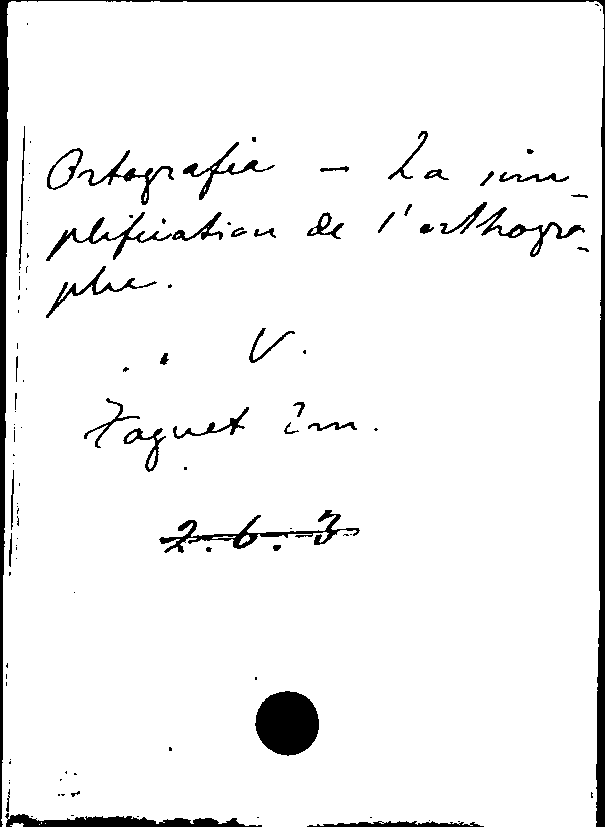 Ortografia - La sim-
plification de l'orthogra-
phie.
V.
Faguet Em.
2.6.3